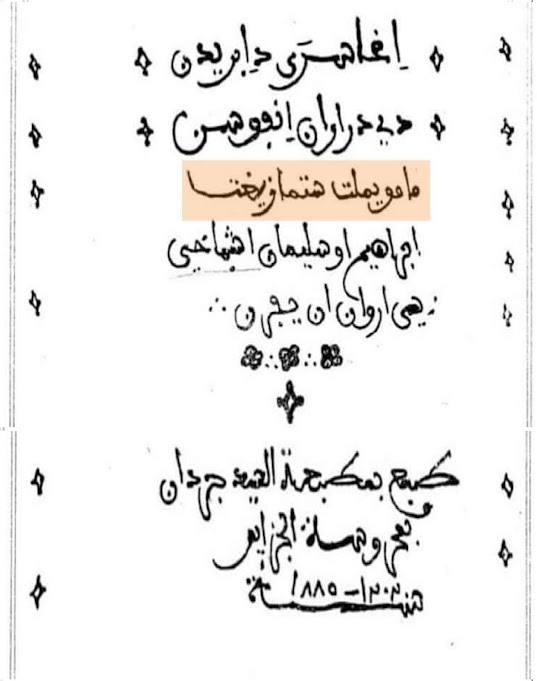 اِغاسرَى دِابريدن
دي دراران اِنفوسن
مامو يملت ستمازيغت
ابراهيم اوسليمان اشماخي
اروان ان يفرن
طبع بمطبعة السيد جردان
بمحروسة الجزاير
سنة ١٣٠٢–١٨٨٥